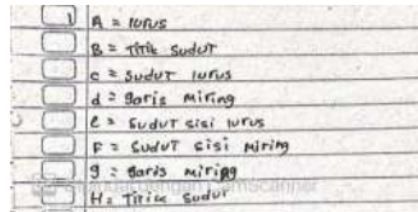 1 A = lurus
B = Titik Sudut
c = Sudut lurus
d = Garis miring
e = Sudut sisi lurus
F = Sudut sisi miring
g = Garis miring
H = Titik Sudut
dengan CamScanner